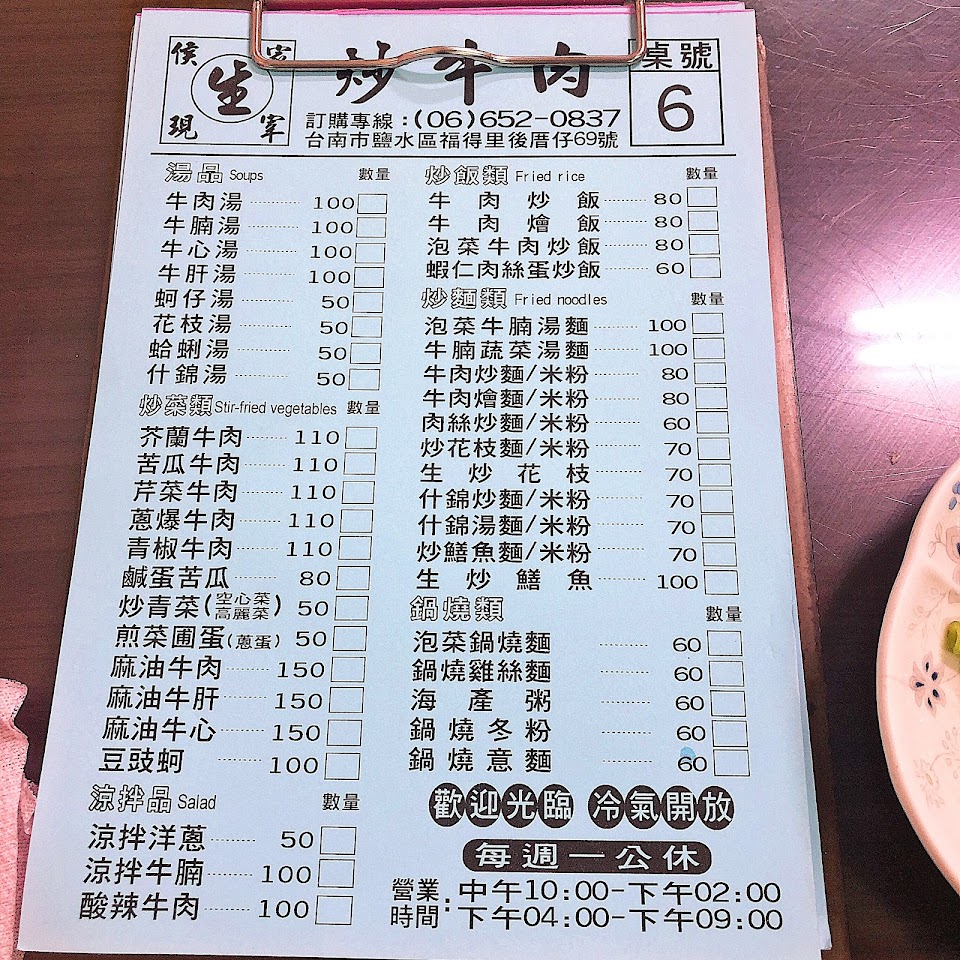 侯 宰
生
現 宰
炒牛肉
訂購專線:(06)652-0837
台南市鹽水區福得里後厝仔69號
桌號
6
湯品 Soups 數量
牛肉湯 100
牛腩湯 100
牛心湯 100
牛肝湯 100
蚵仔湯 50
花枝湯 50
蛤蜊湯 50
什錦湯 50
炒菜類 Stir-fried vegetables 數量
芥蘭牛肉 110
苦瓜牛肉 110
芹菜牛肉 110
蔥爆牛肉 110
青椒牛肉 110
鹹蛋苦瓜 80
炒青菜(空心菜 高麗菜) 50
煎菜圃蛋(蔥蛋) 50
麻油牛肉 150
麻油牛肝 150
麻油牛心 150
豆豉蚵 100
涼拌品 Salad 數量
涼拌洋蔥 50
涼拌牛腩 100
酸辣牛肉 100
炒飯類 Fried rice 數量
牛肉炒飯 80
牛肉燴飯 80
泡菜牛肉炒飯 80
蝦仁肉絲蛋炒飯 60
炒麵類 Fried noodles 數量
泡菜牛腩湯麵 100
牛腩蔬菜湯麵 100
牛肉炒麵/米粉 80
牛肉燴麵/米粉 80
肉絲炒麵/米粉 60
炒花枝麵/米粉 70
生炒花枝 70
什錦炒麵/米粉 70
什錦湯麵/米粉 70
炒鱔魚麵/米粉 70
生炒鱔魚 100
鍋燒類 數量
泡菜鍋燒麵 60
鍋燒雞絲麵 60
海產粥 60
鍋燒冬粉 60
鍋燒意麵 60
歡迎光臨 冷氣開放
每週一公休
營業時間:中午10:00-下午02:00
下午04:00-下午09:00